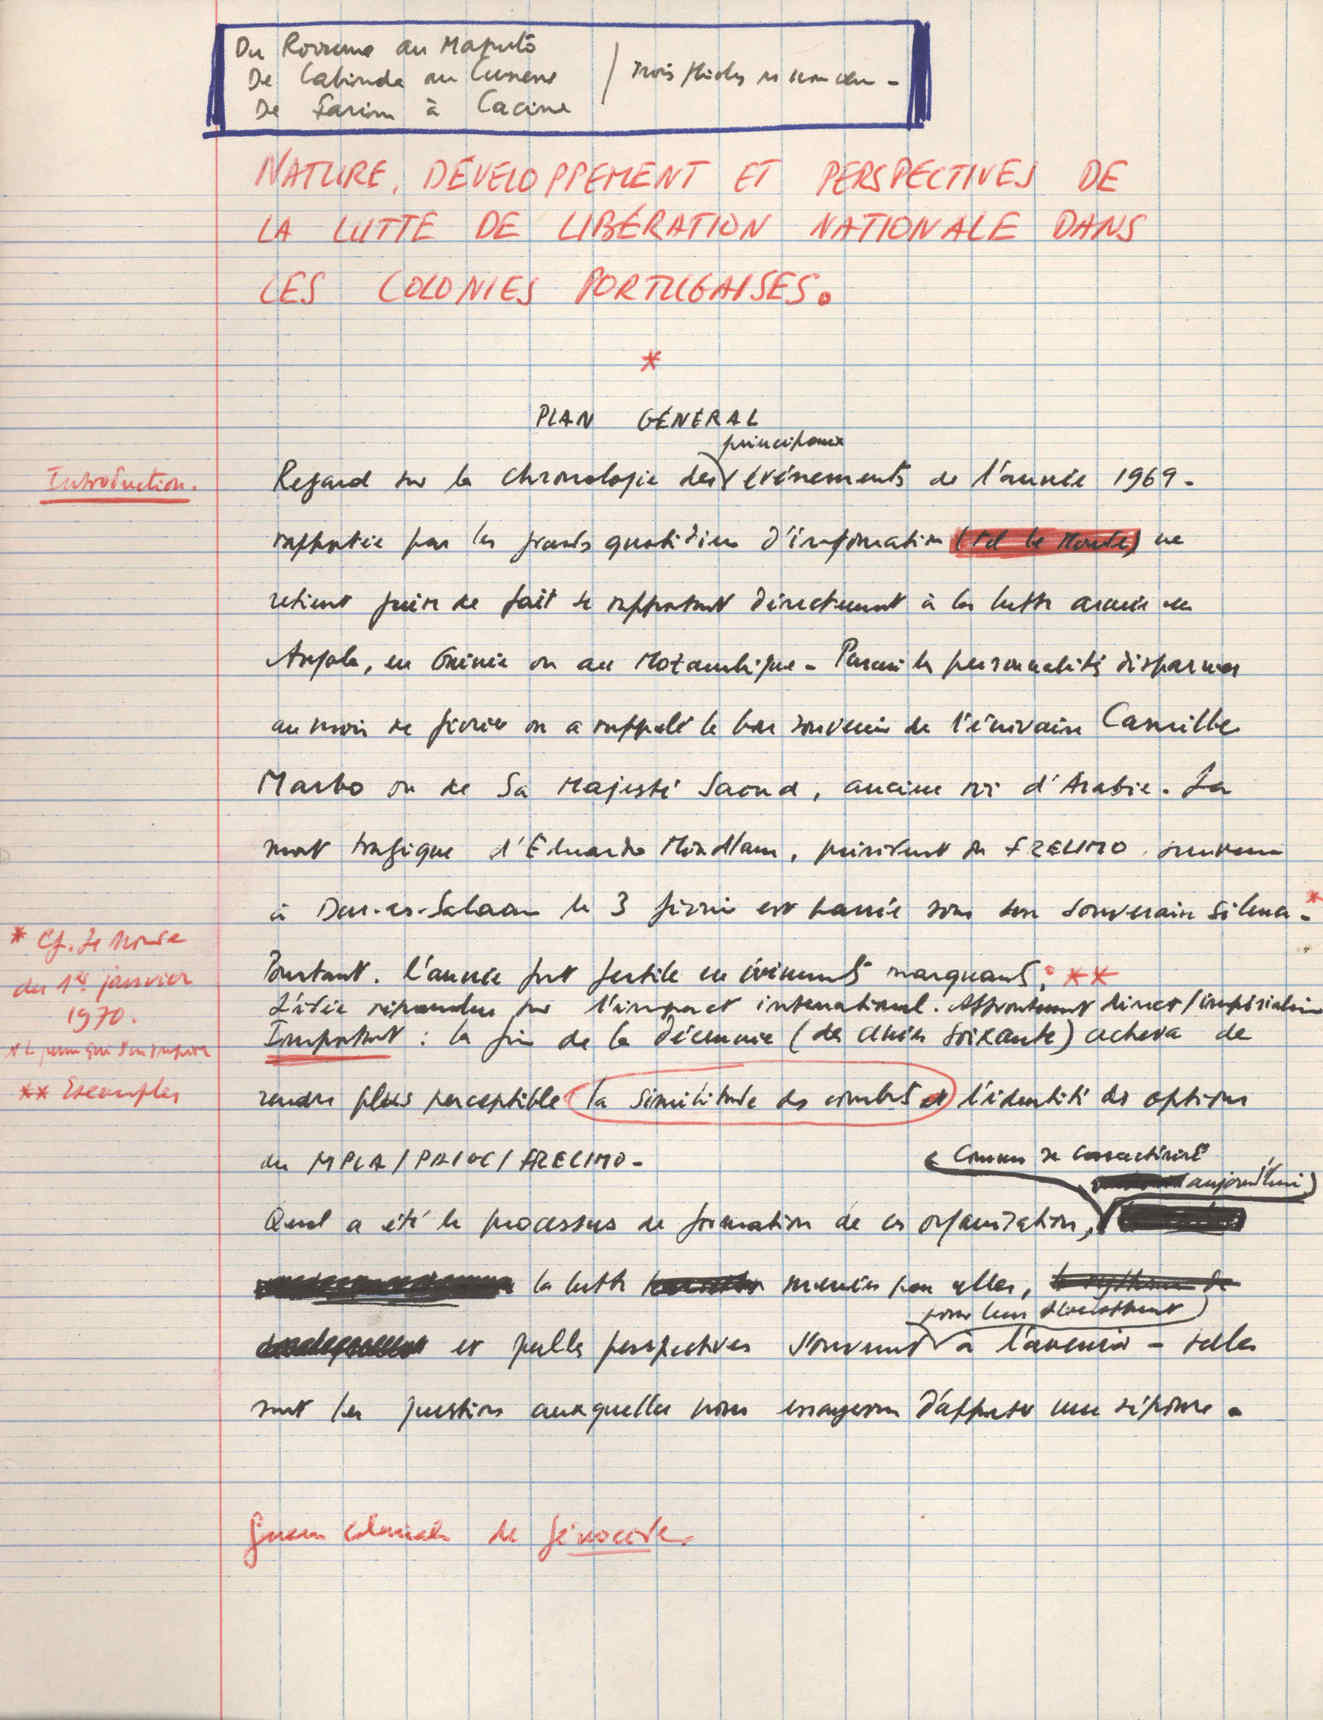 Du Rovuma au Maputo
De Cabinda au Cunene / trois siècles
De Farim à Cacine
NATURE, DÉVELOPPEMENT ET PERSPECTIVES DE
LA LUTTE DE LIBÉRATION NATIONALE DANS
LES COLONIES PORTUGAISES.
*
PLAN GÉNÉRAL
principaux
Introduction.
Regard sur la chronologie des événements de l'année 1969.
rapportée par les grands quotidiens d'information (tel le Monde) ne
retient guère de fait se rapportant directement à la lutte armée en
Angola, en Guinée ou au Mozambique. Parmi les personnalités disparues
au mois de février on a rappelé le bon souvenir de l'écrivain Camille
Marbo ou de Sa Majesté Saoud, ancien roi d'Arabie. La
mort tragique d'Eduardo Mondlane, président du FRELIMO survenue
à Dar-es-Salaam le 3 février est passée sous son souverain silence. *
* Cf. Le Monde
du 1er janvier
1970.
** Exemples
Pourtant. l'année fut fertile en événements marquants: **
L'idée répandue sur l'impact international. Affrontement direct/impérialisme
Important : la fin de la décennie (des années soixante) acheva de
rendre plus perceptible la similitude des combats et l'identité des options
du MPLA/PAIGC/FRELIMO.
Comment se caractérise
aujourd'hui)
Quel a été le processus de formation de ces organisations,
la lutte menée par elles, le rythme de
pour leur dévouement
et quelles perspectives s'ouvrent à l'avenir - telles
sont les questions auxquelles nous essayerons d'apporter une réponse.
Guerre coloniale de génocide.